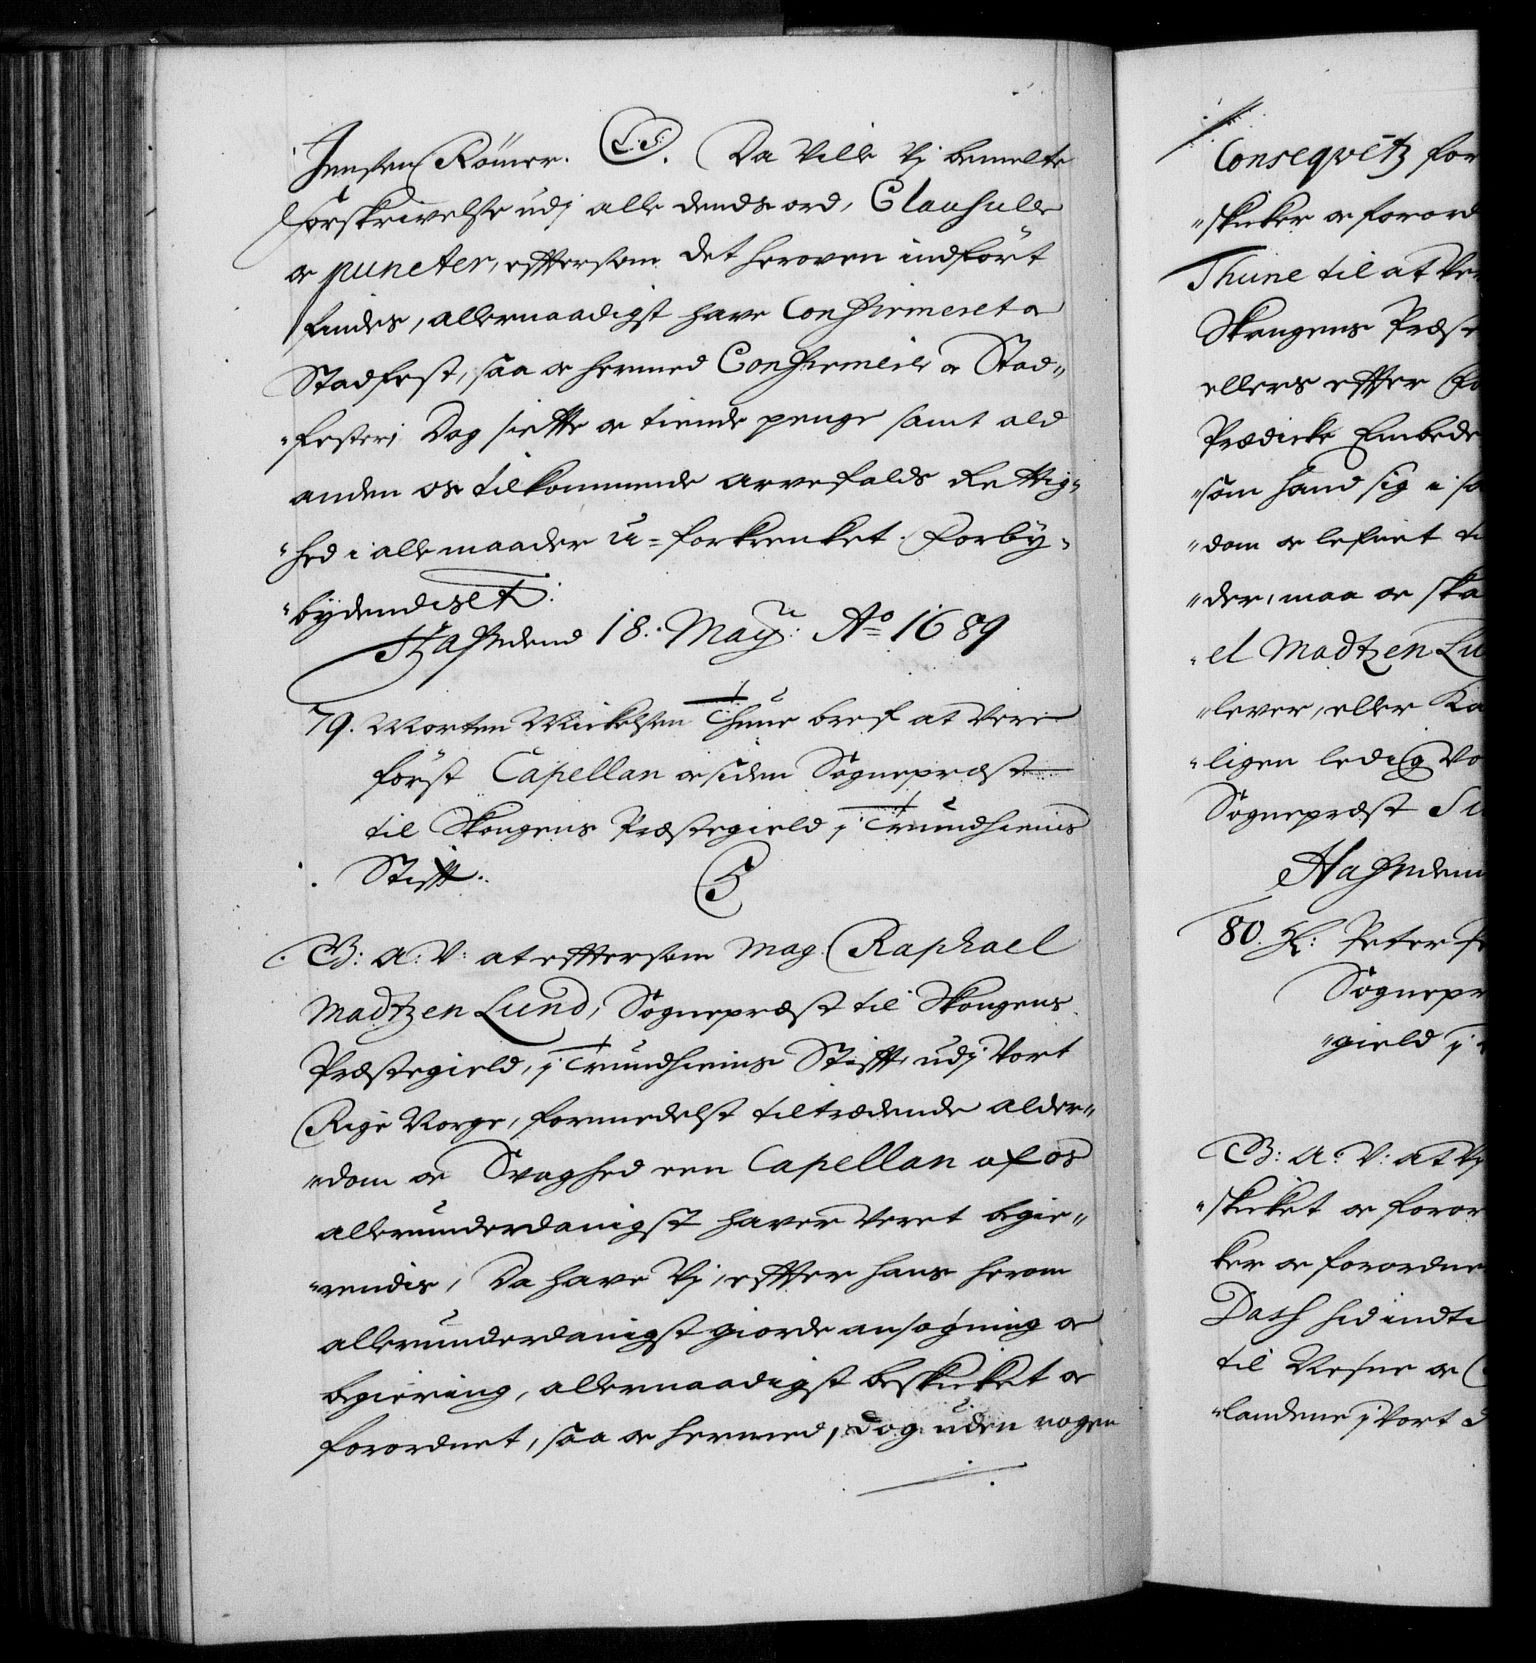 Jensen Römer. L.S. Da Ville Vj bemelte
Forskrivelse udj alle dends ord, Clausuller
oc puncter, eftersom det heroven indfört
findes, allernaadigst have Confirmeret oc
Stadfest, saa oc hermed Confirmerer oc Stad-
festeri Dog siette oc tiende penge samt ald
anden os tilkommende arvefalds Rettig-
hed i alle maader u-forkrenket. Forby-
bydendis etc:
Hafn den 18. Maij: Ao 1689
79. Morten Mickelsen Thune bref at Vere
först Capellan oc siden Sognepræst
til Skongens Præstegield j Trundhiems
Stift.
C5
G: A: V: at eftersom Mag. Raphael
Madtzen Lund, Sognepræst til Skongens
Præstegield, j Trundhiems Stift, udj Vort
Rige Norge, formedelst tiltrædende alder-
dom oc Svaghed een Capellan af os
allerunderdanigst haver Veret begie-
rendis, Da have Vj, efter hans herom
allerunderdanigst giorde ansøgning oc
begiering, allernaadigst beskicket oc
forordnet, saa oc hermed, dog uden nogen
Conseqvetz for
skicker oc forord
Thune til at Ve
Skongens Præst
ellers efter
Prædicke Embede
som hand sig i sa
dom oc lefnet
der, maa oc ska
el Madtzen Lu
lever, eller Ka
ligen ledig Vo
Sognepræst
Hafn den
80. H: Peter
Sognepr
gield j
G: A: V: at Vj
skicket oc foror
ker oc forordne
Dass hid indti
til Nesne oc
landene j Vort